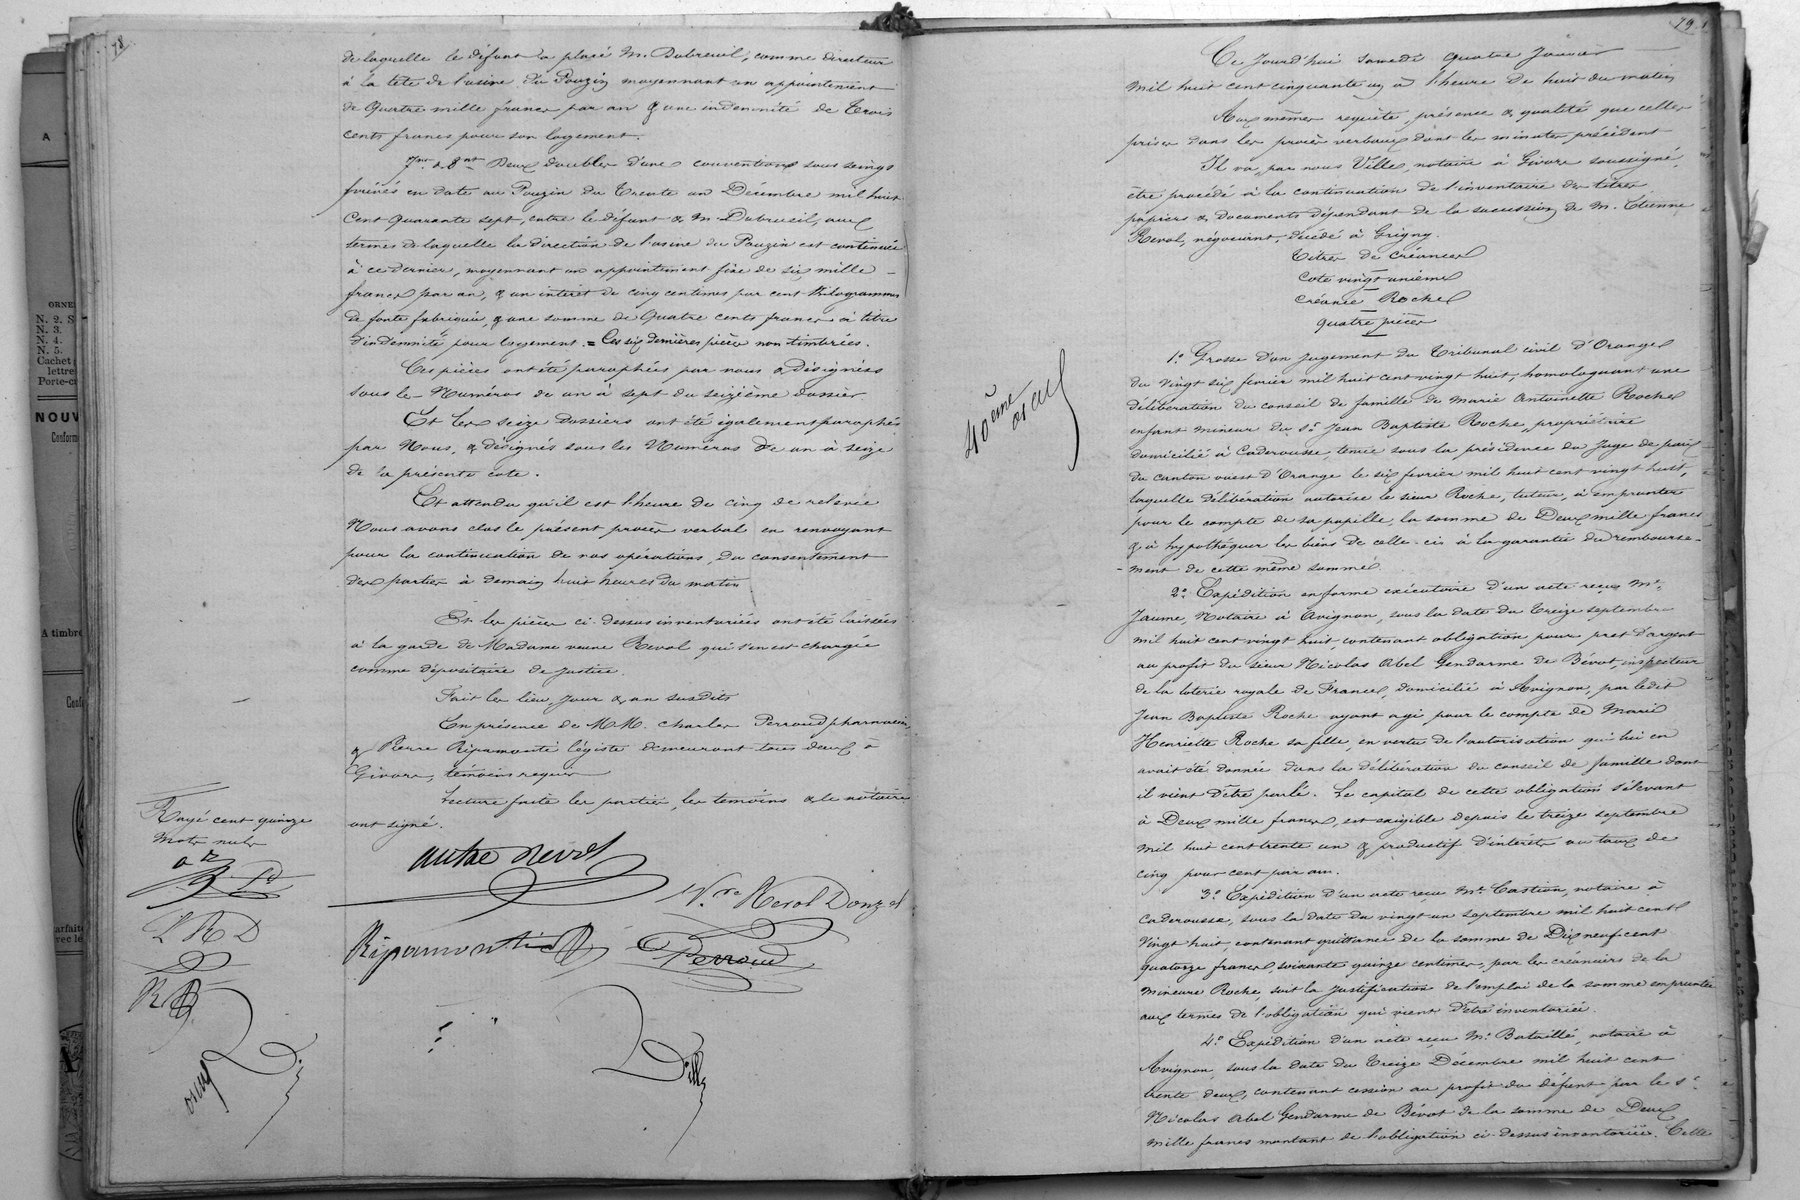 78
de laquelle le défunt a placé M. Dubreuil, comme directeur
à la tête de l'usine du Pouzin moyennant un appointement
de quatre mille francs par an & une indemnité de trois
cents francs pour son logement.
7me & 8me Deux doubles d'une convention sous seings
privés en date au Pouzin du trente un Décembre mil huit
cent quarante sept, entre le défunt & M. Dubreuil, aux
termes de laquelle la direction de l'usine du Pouzin est continuée
à ce dernier, moyennant un appointement fixe de six mille
francs par an, & un intérêt de cinq centimes par cent kilogrammes
de fonte fabriquée, & une somme de quatre cents francs à titre
d'indemnité pour logement. = Ces six dernières pièces non timbrées.
Ces pièces ont été paraphées par nous & désignées
sous les Numéros de un à sept du seizième dossier.
Et les seize dossiers ont été également paraphés
par Nous, & désignés sous les Numéros de un à seize
de la présente cote.
Et attendu qu'il est l'heure de cinq de relevée
Nous avons clos le présent procès verbal en renvoyant
pour la continuation de nos opérations, du consentement
des parties à demain huit heures du matin
Et les pièces ci-dessus inventoriées ont été laissées
à la garde de Madame veuve Revol qui s'en est chargée
comme dépositaire de justice.
Fait les lieu, jour & an susdits
En présence de MM. Charles Perroud pharmacien,
& Pierre Ripamonti légiste demeurant tous deux à
Givors, témoins requis
Lecture faite les parties, les témoins & le notaire
ont signé.
Rayé cent quinze
mots nuls
antne Revol
Ve Revol Donzel
Ripamonti
Perroud
Ville
79
Ce jourd'hui samedi quatre Janvier
mil huit cent cinquante un à l'heure de huit du matin
Aux mêmes requête, présence & qualité que celles
prises dans les procès verbaux dont les minutes précèdent
Il va, par nous Ville, notaire à Givors soussigné,
être procédé à la continuation de l'inventaire des titres
papiers & documents dépendant de la succession de M. Etienne
Revol, négociant, décédé à Grigny.
Titres de créances
Cote vingt unième
Créance Roche
quatre pièces
40ème
1º Grosse d'un jugement du Tribunal civil d'Orange
du vingt six février mil huit cent vingt huit, homologuant une
délibération du conseil de famille de Marie Antoinette Roche
enfant mineur du Sr Jean Baptiste Roche, propriétaire
domicilié à Caderousse, tenue sous la présidence du Juge de paix
du canton ouest d'Orange le six février mil huit cent vingt huit,
laquelle délibération autorise le sieur Roche, tuteur, à emprunter
pour le compte de sa pupille, la somme de Deux mille francs
& à hypothéquer les biens de celle-ci à la garantie du rembourse-
-ment de cette même somme.
2º Expédition en forme exécutoire d'un acte reçu Me
Jaume, Notaire à Avignon, sous la date du treize septembre
mil huit cent vingt huit, contenant obligation pour pret d'argent
au profit du sieur Nicolas Abel Gendarme de Bévot, inspecteur
de la loterie royale de France, domicilié à Avignon, par ledit
Jean Baptiste Roche ayant agi pour le compte de Marie
Henriette Roche sa fille, en vertu de l'autorisation qui lui en
avait été donnée dans la délibération du conseil de famille dont
il vient d'être parlé. Le capital de cette obligation s'élevant
à Deux mille francs, est exigible depuis le treize septembre
mil huit cent trente un & productif d'intérêts au taux de
cinq pour cent par an.
3º Expédition d'un acte reçu Me Castion, notaire à
Caderousse, sous la date du vingt un septembre mil huit cent
vingt huit, contenant quittance de la somme de Dix neuf cent
quatorze francs, soixante quinze centimes, par les créanciers de la
mineure Roche, soit la justification de l'emploi de la somme empruntée
aux termes de l'obligation qui vient d'être inventoriée.
4º Expédition d'un acte reçu Me Bataillé, notaire à
Avignon, sous la date du treize Décembre mil huit cent
trente deux, contenant cession au profit du défunt par le Sr
Nicolas Abel Gendarme de Bévot de la somme de Deux
mille francs montant de l'obligation ci-dessus inventoriée. Cette